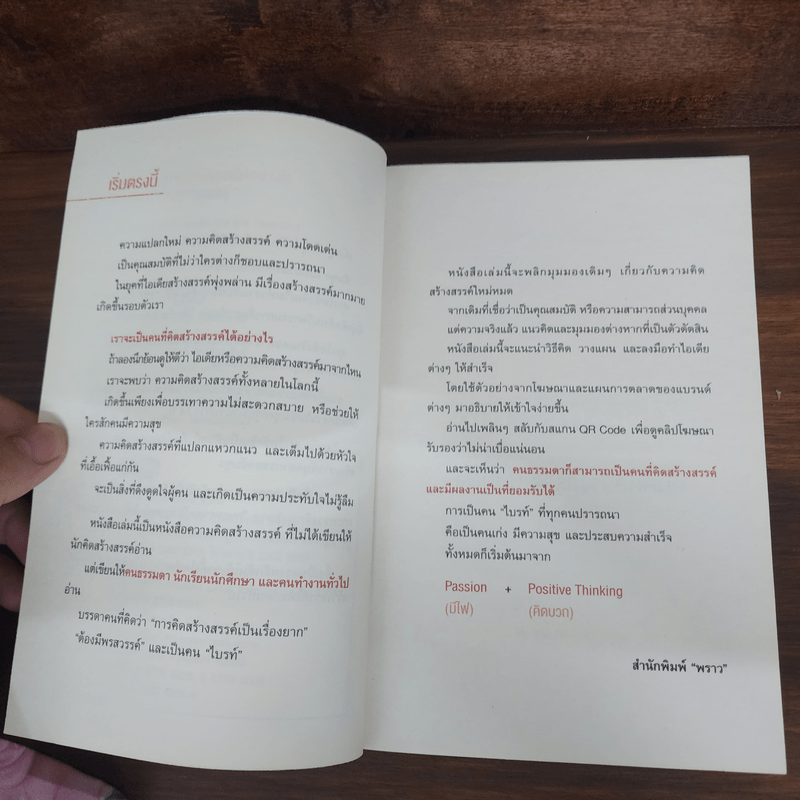 เริ่มตรงนี้
ความแปลกใหม่ ความคิดสร้างสรรค์ ความโดดเด่น
เป็นคุณสมบัติที่ไม่ว่าใครต่างก็ชอบและปรารถนา
ในยุคที่ไอเดียสร้างสรรค์พุ่งพล่าน มีเรื่องสร้างสรรค์มากมาย
เกิดขึ้นรอบตัวเรา
เราจะเป็นคนที่คิดสร้างสรรค์ได้อย่างไร
ถ้าลองนึกย้อนดูให้ดีว่า ไอเดียหรือความคิดสร้างสรรค์มาจากไหน
เราจะพบว่า ความคิดสร้างสรรค์ทั้งหลายในโลกนี้
เกิดขึ้นเพียงเพื่อบรรเทาความไม่สะดวกสบาย หรือช่วยให้
ใครสักคนมีความสุข
ความคิดสร้างสรรค์ที่แปลกแหวกแนว และเต็มไปด้วยหัวใจ
ที่เอื้อเฟื้อแก่กัน
จะเป็นสิ่งที่ดึงดูดใจผู้คน และเกิดเป็นความประทับใจไม่รู้ลืม
หนังสือเล่มนี้เป็นหนังสือความคิดสร้างสรรค์ ที่ไม่ได้เขียนให้
นักคิดสร้างสรรค์อ่าน
แต่เขียนให้คนธรรมดา นักเรียนนักศึกษา และคนทำงานทั่วไป
อ่าน
บรรดาคนที่คิดว่า “การคิดสร้างสรรค์เป็นเรื่องยาก”
“ต้องมีพรสวรรค์” และเป็นคน “ไบรท์”
หนังสือเล่มนี้จะพลิกมุมมองเดิมๆ เกี่ยวกับความคิด
สร้างสรรค์ใหม่หมด
จากเดิมที่เชื่อว่าเป็นคุณสมบัติ หรือความสามารถส่วนบุคคล
แต่ความจริงแล้ว แนวคิดและมุมมองต่างหากที่เป็นตัวตัดสิน
หนังสือเล่มนี้จะแนะนำวิธีคิด วางแผน และลงมือทำไอเดีย
ต่างๆ ให้สำเร็จ
โดยใช้ตัวอย่างจากโฆษณาและแผนการตลาดของแบรนด์
ต่างๆ มาอธิบายให้เข้าใจง่ายขึ้น
อ่านไปเพลินๆ สลับกับสแกน QR Code เพื่อดูคลิปโฆษณา
รับรองว่าไม่น่าเบื่อแน่นอน
และจะเห็นว่า คนธรรมดาก็สามารถเป็นคนที่คิดสร้างสรรค์
และมีผลงานเป็นที่ยอมรับได้
การเป็นคน “ไบรท์” ที่ทุกคนปรารถนา
คือเป็นคนเก่ง มีความสุข และประสบความสำเร็จ
ทั้งหมดก็เริ่มต้นมาจาก
Passion + Positive Thinking
(มีไฟ) (คิดบวก)
สำนักพิมพ์ “พราว”